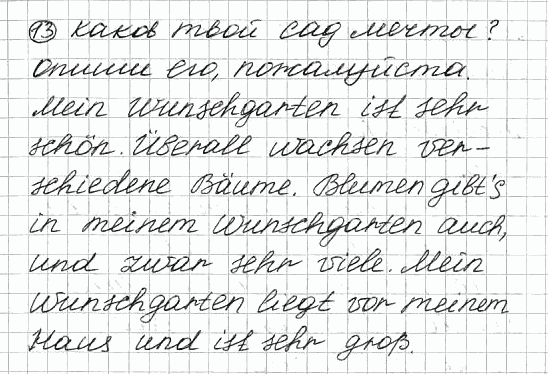 13 Каков твой сад мечты?
Опиши его, пожалуйста.
Mein Wunschgarten ist sehr
schön. Überall wachsen ver-
schiedene Bäume. Blumen gibt's
in meinem Wunschgarten auch,
und zwar sehr viele. Mein
Wunschgarten liegt vor meinem
Haus und ist sehr groß.